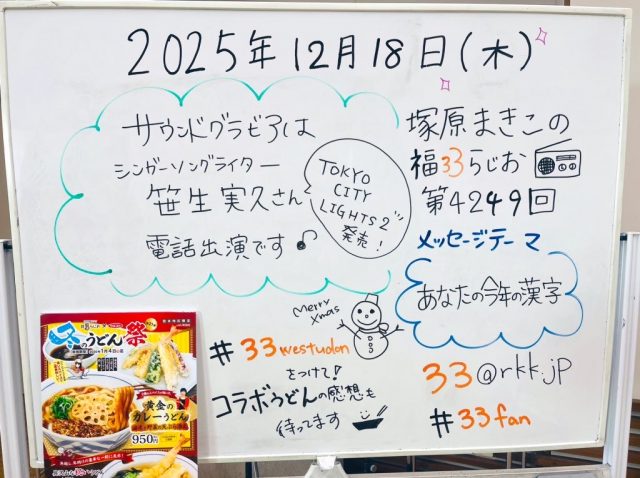 2025年12月18日(木)
サウンドグラビアは
シンガーソングライター
笹生実久さん
電話出演です
TOKYO
CITY
LIGHTS2"
発売!
塚原まきこの
福33らじお
第4249回
メッセージテーマ
あなたの今年の漢字
Merry
Xmas
#33westudon
をつけて!
コラボうどんの感想も
待ってます
33@rkk.jp
#33fan
冬のうどん祭
黄金の
カレーうどん
950円